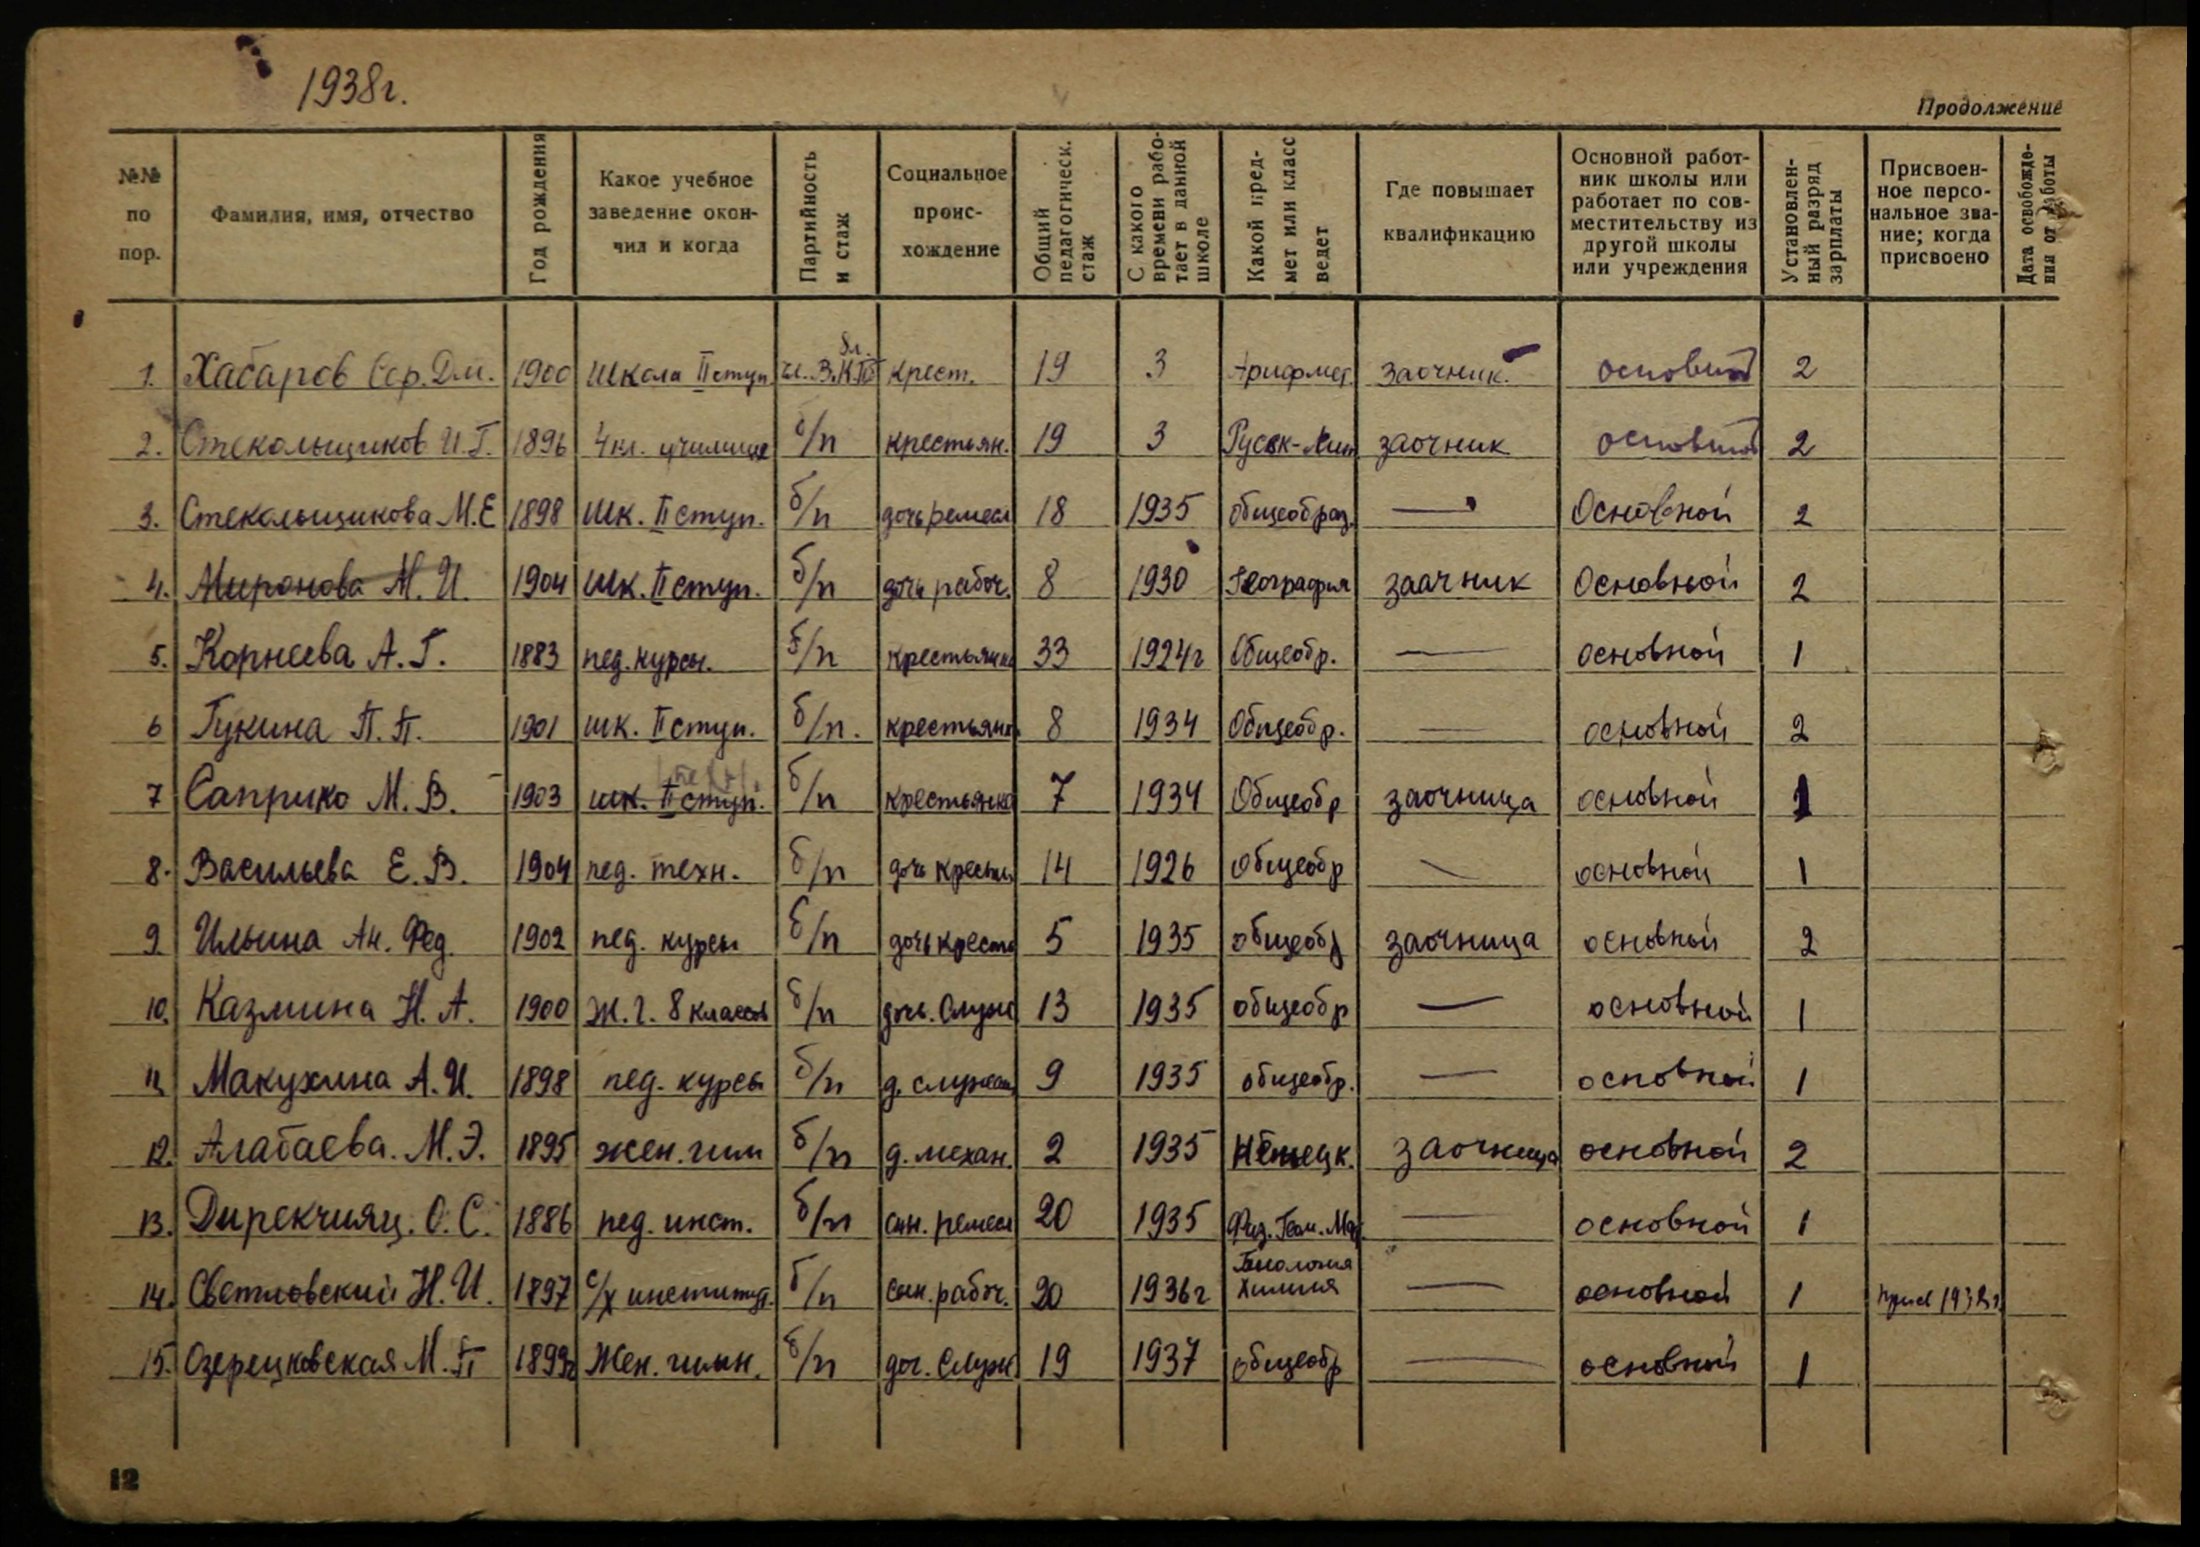 1938г.
Продолжение
№№ по пор.
Фамилия, имя, отчество
Год рождения
Какое учебное заведение окончил и когда
Партийность и стаж
Социальное происхождение
Общий педагогическ. стаж
С какого времени работает в данной школе
Какой предмет или класс ведет
Где повышает квалификацию
Основной работник школы или работает по совместительству из другой школы или учреждения
Установленный разряд зарплаты
Присвоенное персональное звание; когда присвоено
Дата освобождения от работы
1. Хабаров Сер. Дм. 1900 Школа II ступ чл. В.К.П крест. 19 3 Арифмет. заочник. основной 2
2. Стекольщиков И.Г. 1896 4 кл. училище б/п крестьян. 19 3 Русск-Лит заочник основной 2
3. Стекольщикова М.Е 1898 шк. II ступ. б/п дочь ремесл 18 1935 общеобраз. — Основной 2
4. Миронова М. И. 1904 шк. II ступ. б/п дочь рабоч. 8 1930 География заачник Основной 2
5. Корнеева А. Г. 1883 пед. курсы. б/п крестьянка 33 1924г Общеобр. — основной 1
6 Гукина П. П. 1901 шк. II ступ. б/п. крестьянк. 8 1934 Общеобр. — основной 2
7 Саприко М. В. 1903 шк. II ступ. б/п крестьянка 7 1934 Общеобр заочница основной 1
8. Васильева Е. В. 1904 пед. техн. б/п дочь крестьян 14 1926 Общеобр — основной 1
9. Ильина Ан. Фед. 1902 пед. курсы б/п дочь крестья 5 1935 общеобр заочница основной 2
10. Казмина Н. А. 1900 Ж. г. 8 классов б/п дочь. Служ 13 1935 общеобр — основной 1
11. Макухина А. И. 1898 пед. курсы б/п д. служащ 9 1935 общеобр. — основной 1
12. Алабаева. М. Э. 1895 жен. гим б/п д. механ. 2 1935 Немецк. заочница основной 2
13. Дирекчиянц. О. С. 1886 пед. инст. б/п сын. ремесл 20 1935 Физ. Геом. Мат. — основной 1
14. Светловский Н. И. 1897 с/х институт. б/п сын. рабоч. 20 1936г Биология Химия — основной 1
15. Озерецковская М. П 1899г Жен. гимн. б/п доч. Служ 19 1937 общеобр — основной 1
12